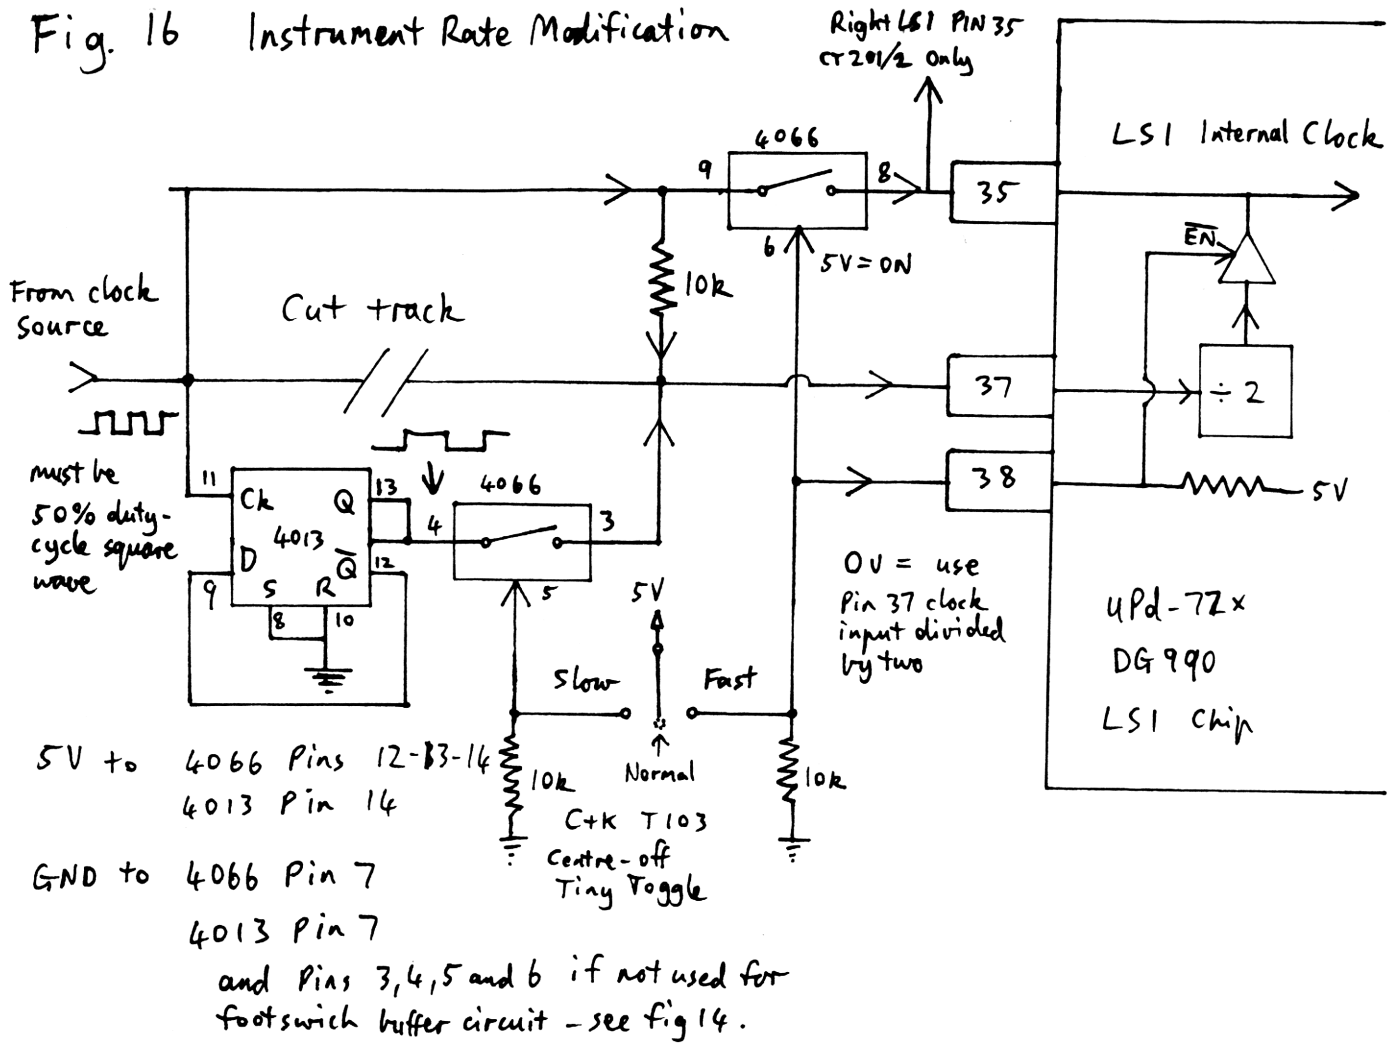 Fig. 16 Instrument Rate Modification
Right LSI PIN 35
CT 201/2 Only
4066
9
8
6
5V = ON
35
LSI Internal Clock
EN
From clock
source
Cut track
10k
37
÷ 2
must be
50% duty-
cycle square
wave
11
Ck
Q
13
4013
D
Q
12
9
S
R
8
10
4066
4
3
5
38
5V
5V
0V = use
Pin 37 clock
input divided
by two
Slow
Fast
Normal
10k
10k
C+K T103
Centre-off
Tiny Toggle
uPd-77x
DG990
LSI Chip
5V to 4066 Pins 12-13-14
4013 Pin 14
GND to 4066 Pin 7
4013 Pin 7
and Pins 3,4,5 and 6 if not used for
footswich buffer circuit - see fig 14.